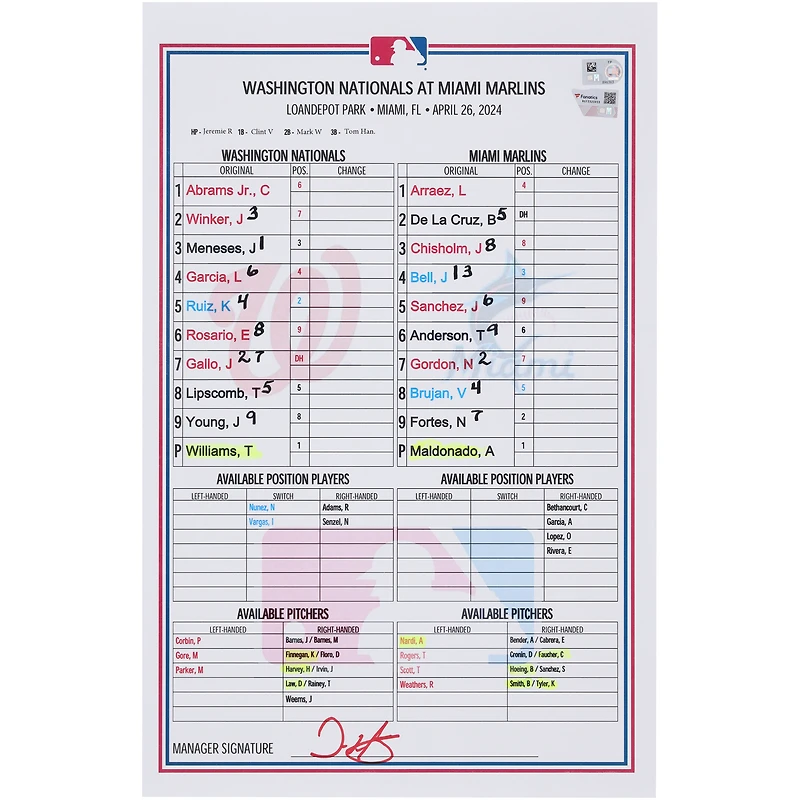 WASHINGTON NATIONALS AT MIAMI MARLINS
LOANDEPOT PARK • MIAMI, FL • APRIL 26, 2024
HP - Jeremie R 1B - Clint V 2B - Mark W 3B - Tom Han.
Fanatics
WASHINGTON NATIONALS
ORIGINAL POS. CHANGE
1 Abrams Jr., C 6
2 Winker, J 3 7
3 Meneses, J 1 3
4 Garcia, L 6 4
5 Ruiz, K 4 2
6 Rosario, E 8 9
7 Gallo, J 27 DH
8 Lipscomb, T 5 5
9 Young, J 9 8
P Williams, T 1
MIAMI MARLINS
ORIGINAL POS. CHANGE
1 Arraez, L 4
2 De La Cruz, B 5 DH
3 Chisholm, J 8 8
4 Bell, J 13 3
5 Sanchez, J 6 9
6 Anderson, T 9 6
7 Gordon, N 2 7
8 Brujan, V 4 5
9 Fortes, N 7 2
P Maldonado, A 1
Miami
AVAILABLE POSITION PLAYERS
LEFT-HANDED SWITCH RIGHT-HANDED
Nunez, N Adams, R
Vargas, I Senzel, N
AVAILABLE POSITION PLAYERS
LEFT-HANDED SWITCH RIGHT-HANDED
Bethancourt, C
Garcia, A
Lopez, O
Rivera, E
AVAILABLE PITCHERS
LEFT-HANDED RIGHT-HANDED
Corbin, P Barnes, J / Barnes, M
Gore, M Finnegan, K / Floro, D
Parker, M Harvey, H / Irvin, J
Law, D / Rainey, T
Weems, J
AVAILABLE PITCHERS
LEFT-HANDED RIGHT-HANDED
Nardi, A Bender, A / Cabrera, E
Rogers, T Cronin, D / Faucher, C
Scott, T Hoeing, B / Sanchez, S
Weathers, R Smith, B / Tyler, K
MANAGER SIGNATURE